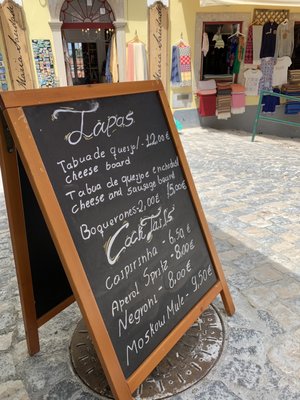 Tapas
Tabua de queijo/ - 12.00€
cheese board
Tabua de queijo e enchidos/
cheese and sausage board
15.00€
Boquerones - 2,00€
CockTails
Caipirinha - 6.50€
Aperol Spritz - 8.00€
Negroni - 8.00€
Moskow Mule - 9.50€